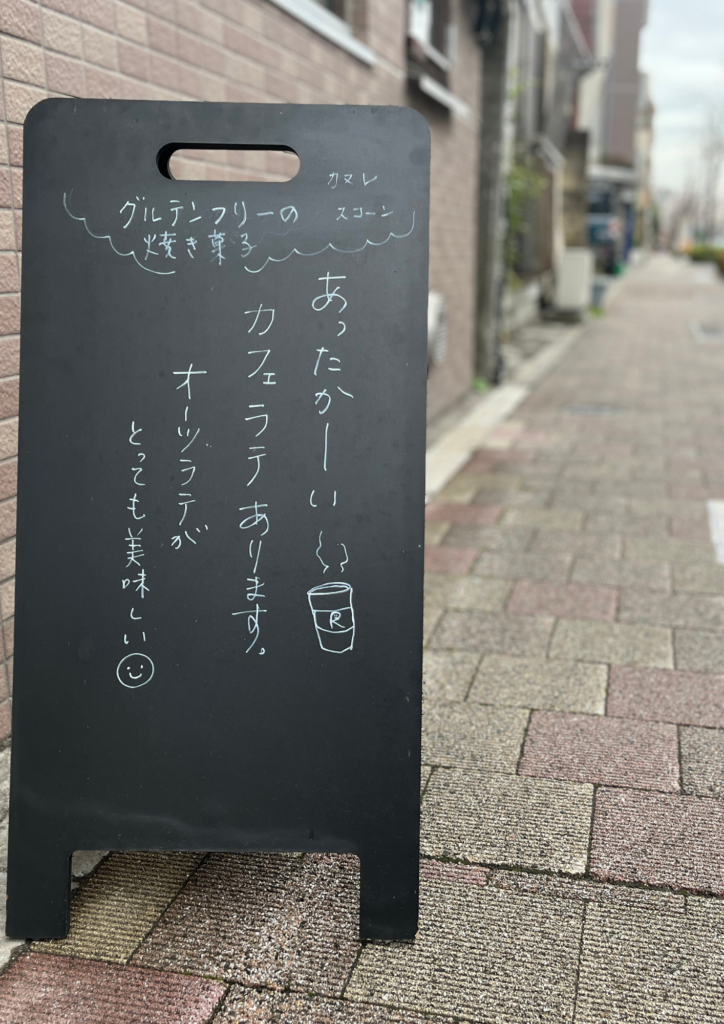 グルテンフリーの
焼き菓子
カヌレ
スコーン
あったかーい
カフェラテあります。
オーツラテが
とっても美味しい
R